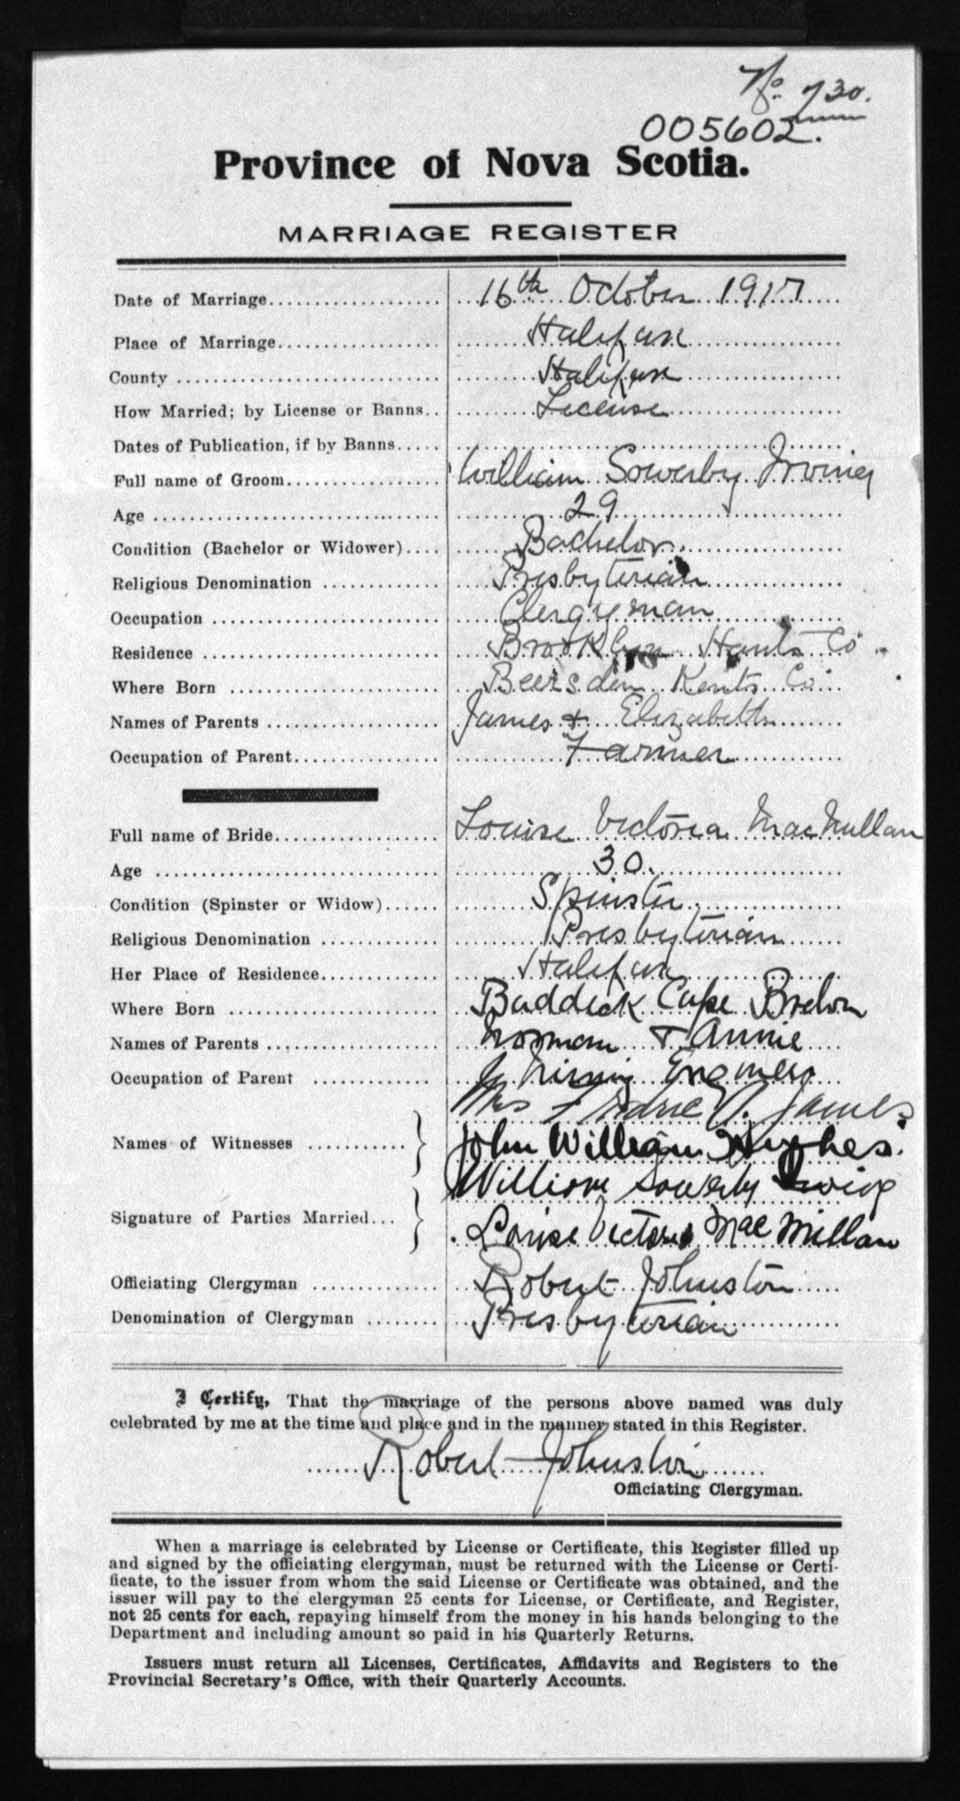 No. 730.
005602.
Province of Nova Scotia.
MARRIAGE REGISTER
Date of Marriage 16th October 1917
Place of Marriage Halifax
County Halifax
How Married; by License or Banns License
Dates of Publication, if by Banns
Full name of Groom William Sowerby Irving
Age 29
Condition (Bachelor or Widower) Bachelor.
Religious Denomination Presbyterian
Occupation Clergyman
Residence Brooklyn Hants Co.
Where Born Kents Co.
Names of Parents James & Elizabeth
Occupation of Parent Farmer
Full name of Bride Louise Victoria MacMillan
Age 30.
Condition (Spinster or Widow) Spinster
Religious Denomination Presbyterian
Her Place of Residence Halifax
Where Born Baddeck Cape Breton
Names of Parents Norman & Annie
Occupation of Parent Mining Engineer
Mrs James
Names of Witnesses
John William Hughes.
William Sowerby Irving
Signature of Parties Married
Louise Victoria MacMillan
Officiating Clergyman Robert Johnston
Denomination of Clergyman Presbyterian
I Certify, That the marriage of the persons above named was duly
celebrated by me at the time and place and in the manner stated in this Register.
Robert Johnston
Officiating Clergyman.
When a marriage is celebrated by License or Certificate, this Register filled up
and signed by the officiating clergyman, must be returned with the License or Certi-
ficate, to the issuer from whom the said License or Certificate was obtained, and the
issuer will pay to the clergyman 25 cents for License, or Certificate, and Register,
not 25 cents for each, repaying himself from the money in his hands belonging to the
Department and including amount so paid in his Quarterly Returns.
Issuers must return all Licenses, Certificates, Affidavits and Registers to the
Provincial Secretary's Office, with their Quarterly Accounts.